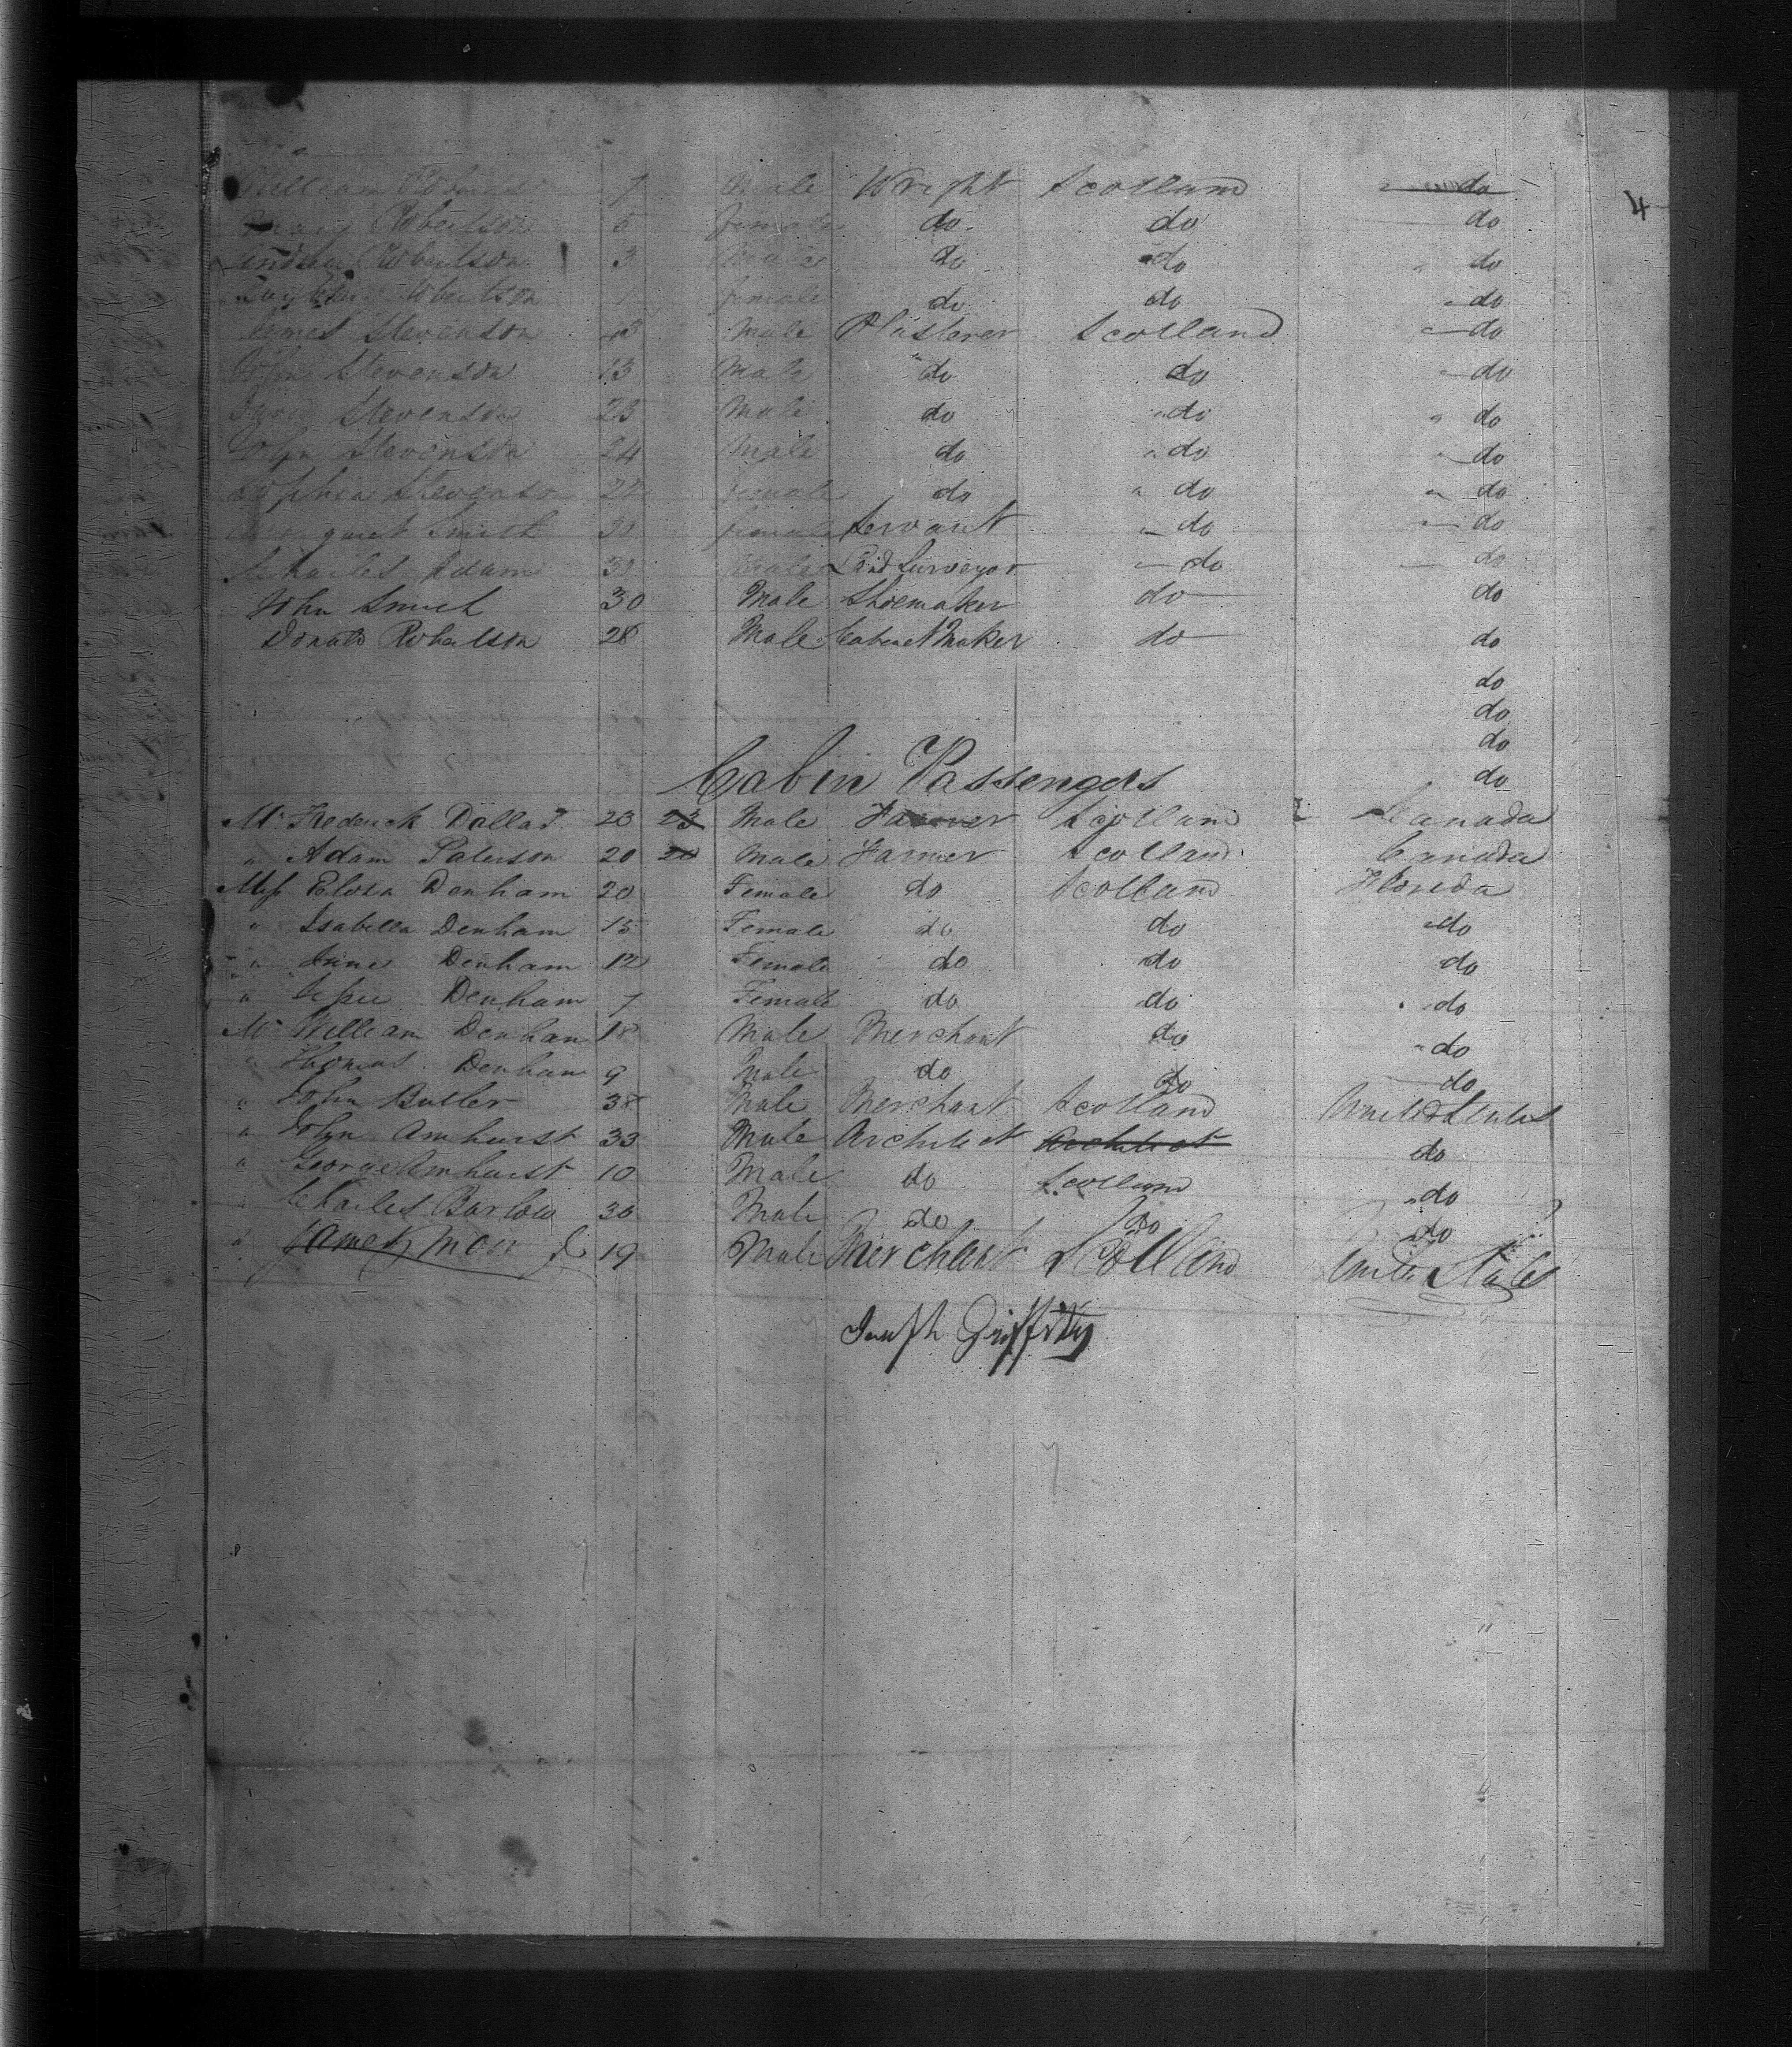 4
William 7 Male Wright Scotland do
Mary Robertson 5 Female do do do
Andrew Robertson 3 Male do do do
Robertson 1 female do do do
James Stevenson Male Plasterer Scotland do
John Stevenson 13 Male do do do
Stevenson 25 Male do do do
John Stevenson 24 Male do do do
Sophia Stevenson 22 female do do do
Smith 30 female Servant do do
Charles Adam 30 Male Land Surveyor do do
John Smith 30 Male Shoemaker do do
Donald Robertson 28 Male Cabinet Maker do do
do
do
do
do
Cabin Passengers
Mr Frederick Dallas 23 23 Male Farmer Scotland Canada
" Adam Paterson 20 20 Male Farmer Scotland Canada
Miss Eloza Denham 20 Female do Scotland Florida
" Isabella Denham 15 Female do do do
" Denham 12 Female do do do
" Jessie Denham 7 Female do do do
Mr William Denham 18 Male Merchant do do
" Thomas Denham 9 Male do do do
" John Butler 38 Male Merchant Scotland United States
" John Amhurst 33 Male Architect Architect do
" George Amhurst 10 Male do Scotland do
" Charles Barlow 30 Male do do do
" James 19 Male Merchant Scotland United States
Joseph Griffiths